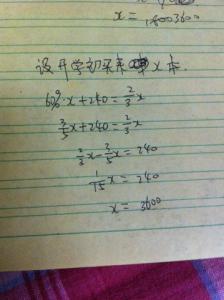 x=
设开学初买来x本.
60%·x+240=2/3x
3/5x+240=2/3x
2/3x-3/5x=240
1/15x=240
x=3600